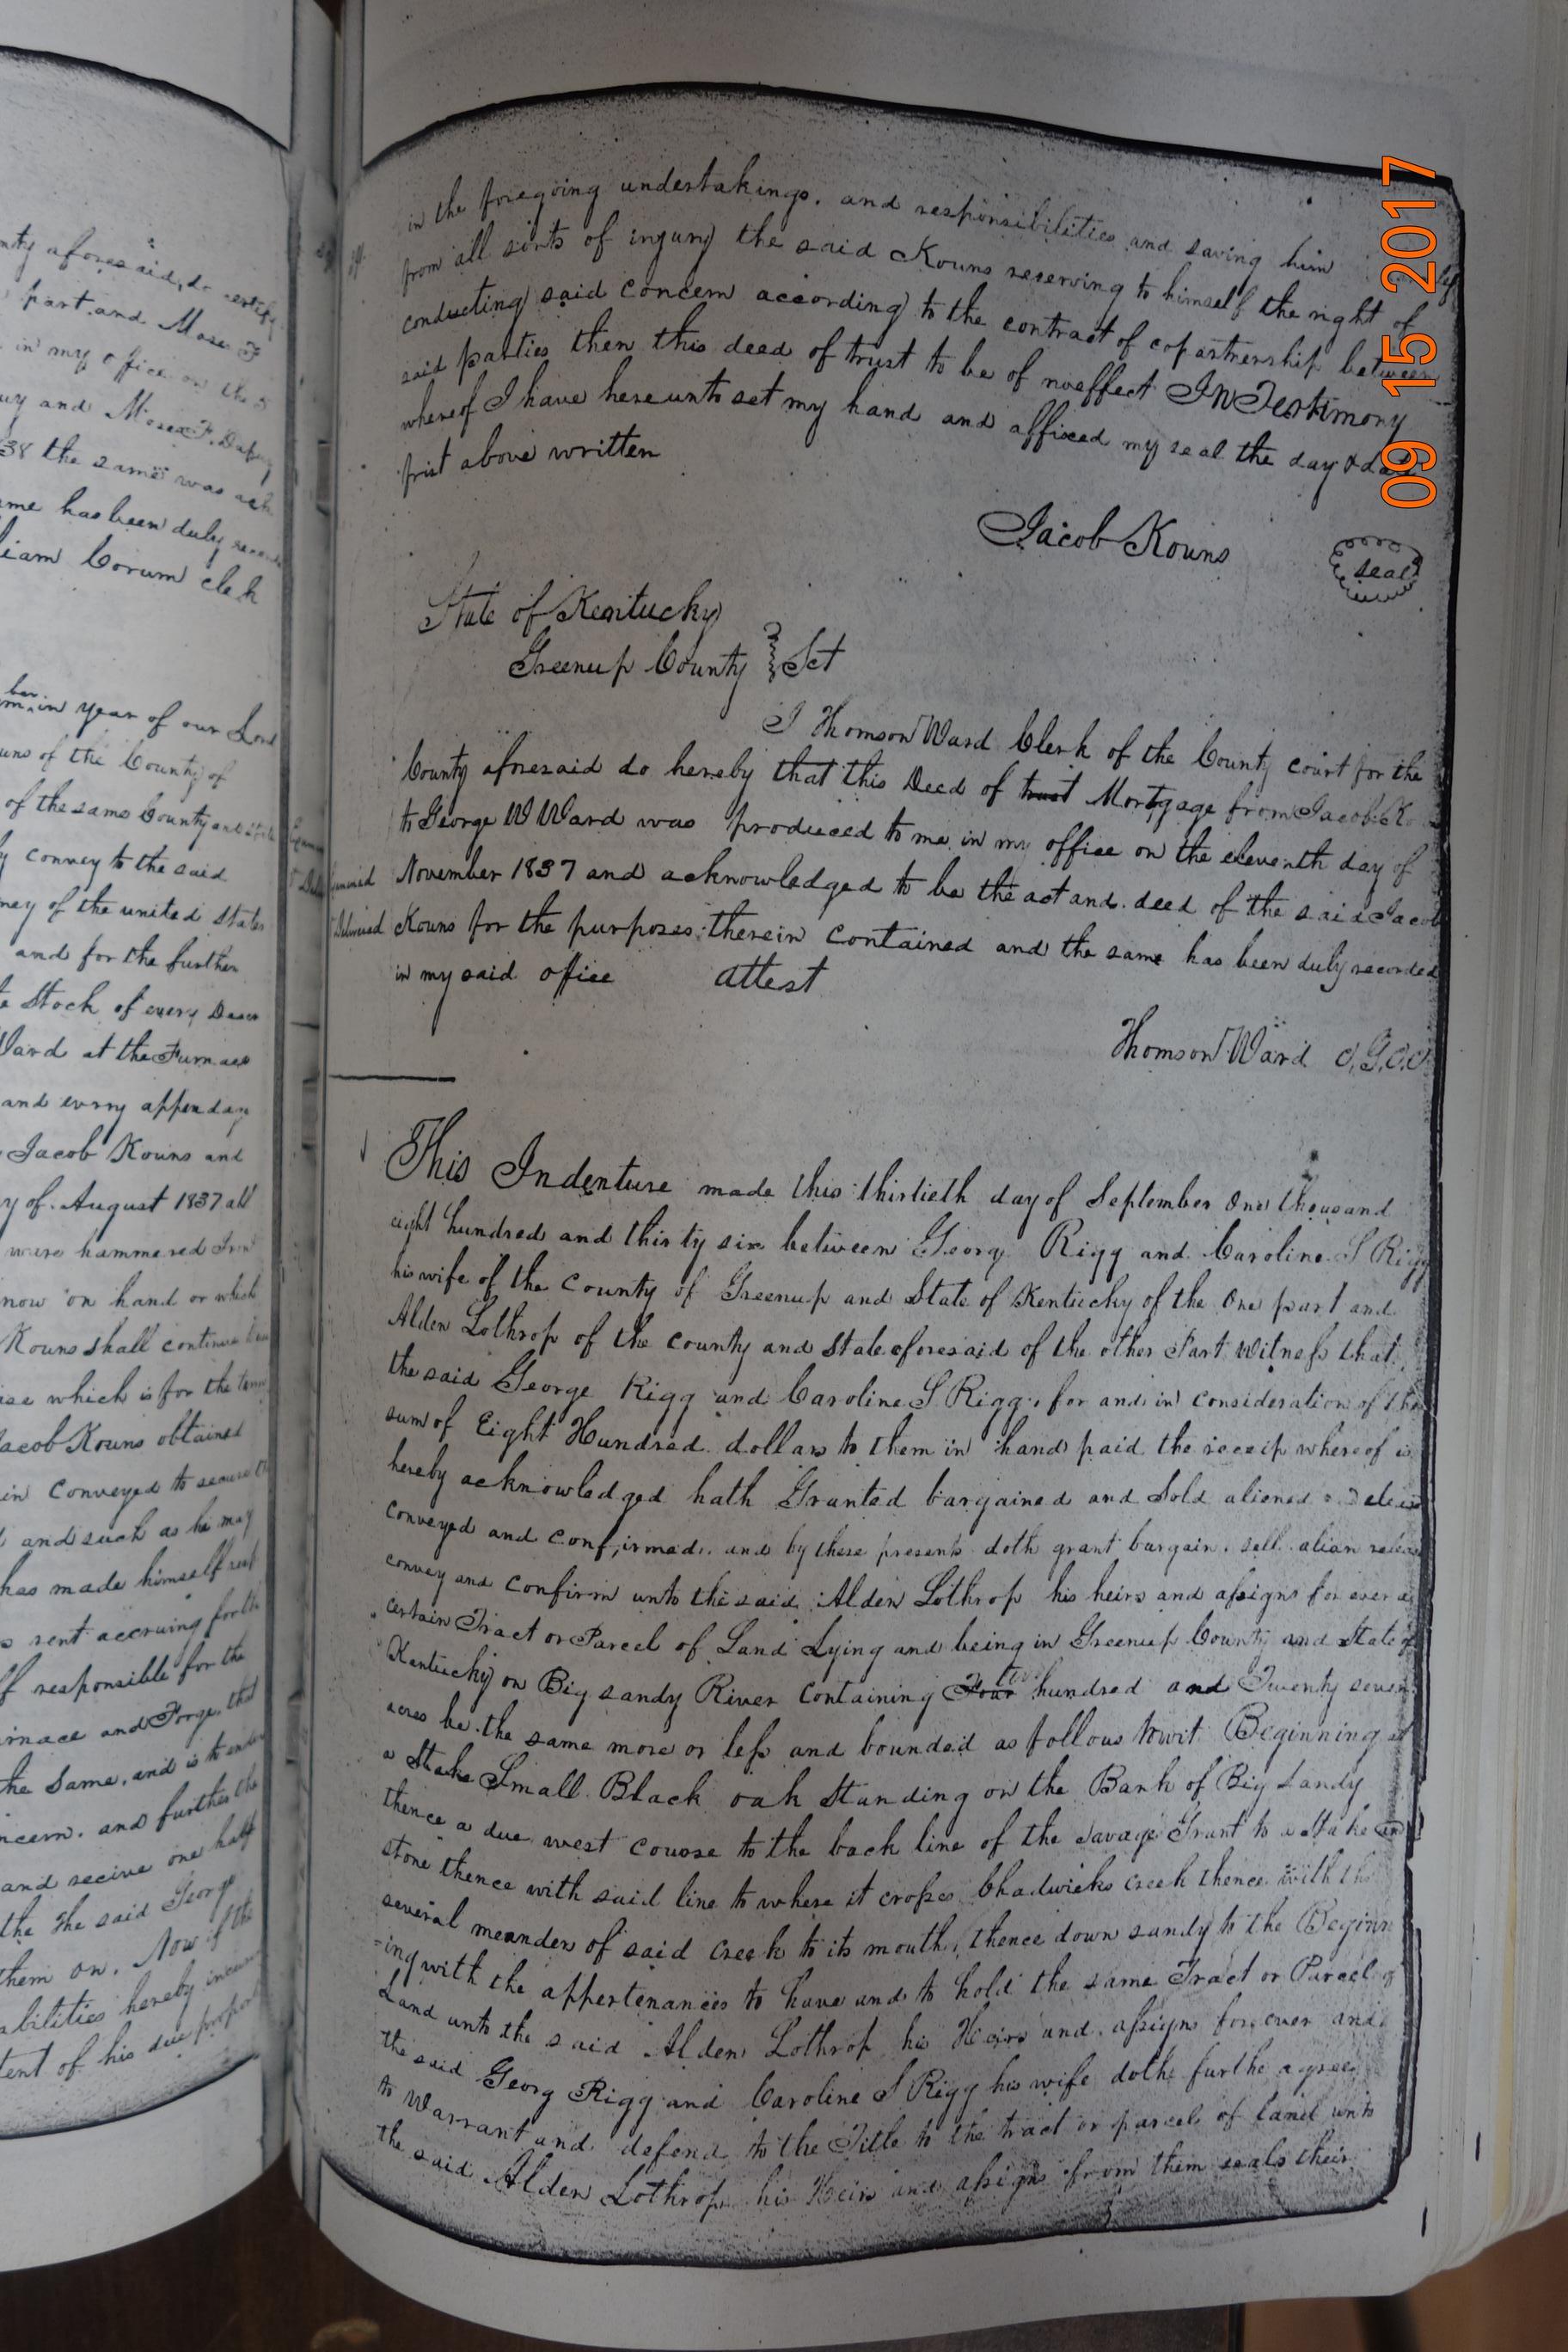 nty aforesaid, do certify
part and Mose F
in my office on the 5
uy and Moses F. Dupuy
38 the same was ack
me has been duly
liam Corum clek
ber
in year of our Lord
uns of the County of
of the same County and State
y convey to the said
ney of the united States
and for the further
Stock of every Descr
Ward at the Furnace
and every appendag
Jacob Kouns and
y of August 1837 all
ware hammered Iron
now on hand or which
Kouns shall continue
ise which is for the term
Jacob Kouns obtained
in Conveyed to secure
and such as he may
has made himself
rent accruing for the
f responsible for the
urnace and Forge, that
the Same, and is to
ncern. and further the
and recive one half
the The said George
them on. Now if the
abilities hereby
tent of his due
in the foregoing undertakings, and responsibilities and saving him
from all sorts of ingury the said Kouns reserving to himself the right of
conducting said concern according to the contract of copartnership between
said parties then this deed of trust to be of no effect In Testimony
whereof I have hereunto set my hand and affixed my seal the day & date
first above written
Jacob Kouns seal
State of Kentucky
Greenup County Sct
I Thomson Ward Clerk of the County court for the
County aforesaid do hereby that this Deed of trust Mortgage from Jacob
to George W Ward was produced to me in my office on the eleventh day of
November 1837 and acknowledged to be the act and deed of the said Jacob
Delivered Kouns for the purposes therein contained and the same has been duly recorded
in my said office attest
Thomson Ward C.G.C.C.
This Indenture made this thirtieth day of September One thousand
eight hundred and thirty six between Georg Rigg and Caroline S Rigg
his wife of the County of Greenup and State of Kentucky of the One part and
Alden Lothrop of the county and State aforesaid of the other Part Witness that
the said George Rigg and Caroline S Rigg, for and in consideration of the
sum of Eight Hundred dollars to them in hand paid the receip whereof is
hereby acknowledged hath Granted bargained and Sold aliened
conveyed and confirmed. and by these presents doth grant bargain. sell. alian release
convey and confirm unto the said Alden Lothrop his heirs and assigns for ever a
certain Tract or Parcel of Land Lying and being in Greenup County and State of
Kentucky on Big sandy River Containing Four two hundred and Twenty seven
acres be the same more or less and bounded as follows towit Beginning at
a Stake Small Black oak Standing on the Bank of Big Sandy
thence a due west couose to the back line of the Savage Grant to a Stake
stone thence with said line to where it crosses Chadwicks creek thence with the
several meander of said creek to its mouth, thence down sandy to the Beginn
-ing with the appertenances to have and to hold the same Tract or Parcel of
Land unto the said Alden Lothrop his Heirs and assigns for ever and
the said Georg Rigg and Caroline S Rigg his wife doth furthe agree
to Warrant and defend to the Title to the tract or parcel of land unto
the said Alden Lothrop his Heirs and assigns from them seals their
09 15 2017